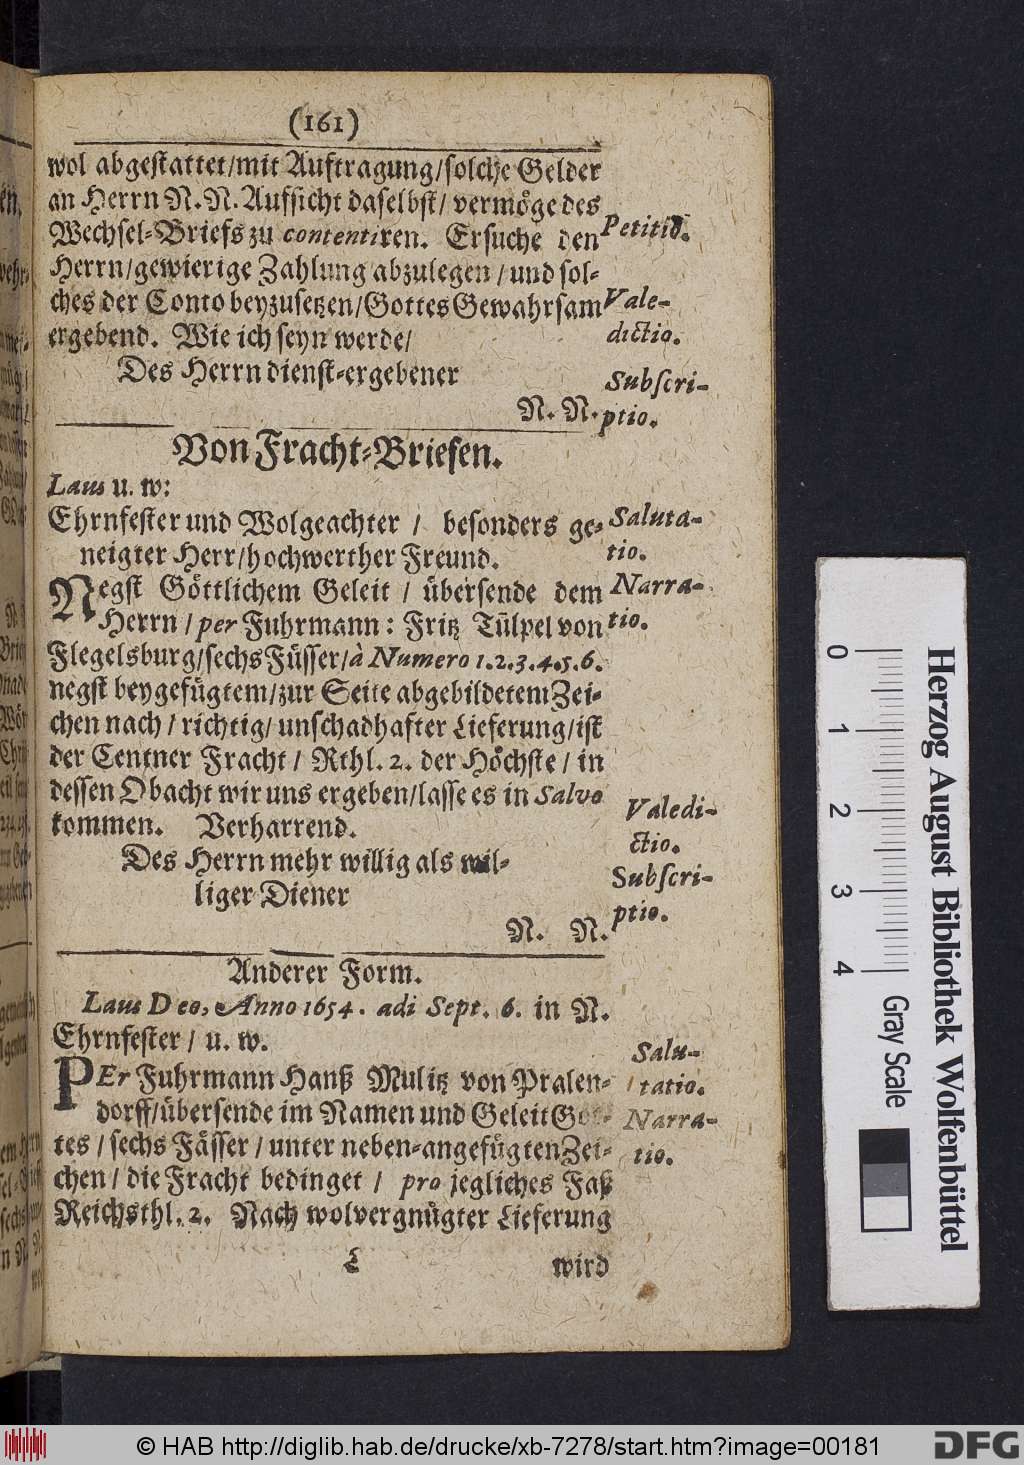 (161)
wol abgestattet/mit Auftragung/solche Gelder
an Herrn N. N. Aufsicht daselbst/ vermöge des
Wechsel-Briefs zu contentiren. Ersuche den Petitio.
Herrn/gewierige Zahlung abzulegen / und sol-
ches der Conto beyzusetzen/Gottes Gewahrsam Vale-
ergebend. Wie ich seyn werde/ dictio.
Des Herrn dienst-ergebener Subscri-
N. N. ptio.
Von Fracht-Briefen.
Laus u. w:
Ehrnfester und Wolgeachter / besonders ge- Saluta-
neigter Herr/hochwerther Freund. tio.
Negst Göttlichem Geleit / übersende dem Narra-
Herrn / per Fuhrmann: Fritz Tülpel von tio.
Flegelsburg/sechs Füsser/à Numero 1.2.3.4.5.6.
negst beygefügtem/zur Seite abgebildetem Zei-
chen nach / richtig/ unschadhafter Lieferung/ist
der Centner Fracht / Rthl. 2. der Höchste / in
dessen Obacht wir uns ergeben/lasse es in Salvo
kommen. Verharrend. Valedi-
ctio.
Des Herrn mehr willig als wil- Subscri-
liger Diener ptio.
N. N.
Anderer Form.
Laus Deo, Anno 1654. adi Sept. 6. in N.
Ehrnfester / u. w. Salu-
PEr Fuhrmann Hanß Mulitz von Pralen- tatio.
dorff/übersende im Namen und Geleit Got- Narra-
tes / sechs Fässer / unter neben-angefügten Zei- tio.
chen / die Fracht bedinget / pro jegliches Faß
Reichsthl. 2. Nach wolvergnügter Lieferung
L wird
0 1 2 3 4
Gray Scale
Herzog August Bibliothek Wolfenbüttel
© HAB http://diglib.hab.de/drucke/xb-7278/start.htm?image=00181
DFG